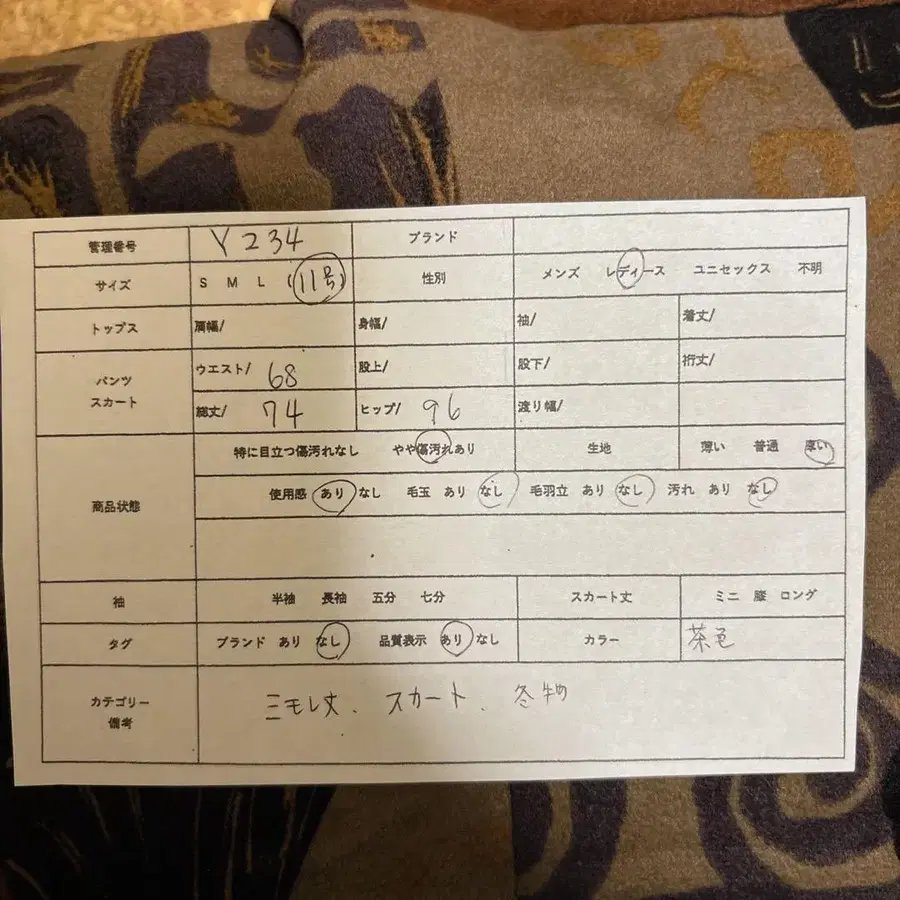 管理番号 Y234 ブランド
サイズ S M L (11号) 性別 メンズ レディース ユニセックス 不明
トップス 肩幅/ 身幅/ 袖/ 着丈/
パンツ スカート ウエスト/ 68 股上/ 股下/ 裄丈/
総丈/ 74 ヒップ/ 96 渡り幅/
商品状態 特に目立つ傷汚れなし やや傷汚れあり 生地 薄い 普通 厚い
使用感 あり なし 毛玉 あり なし 毛羽立 あり なし 汚れ あり なし
袖 半袖 長袖 五分 七分 スカート丈 ミニ 膝 ロング
タグ ブランド あり なし 品質表示 あり なし カラー 茶色
カテゴリー 備考 ミモレ丈、スカート、冬物